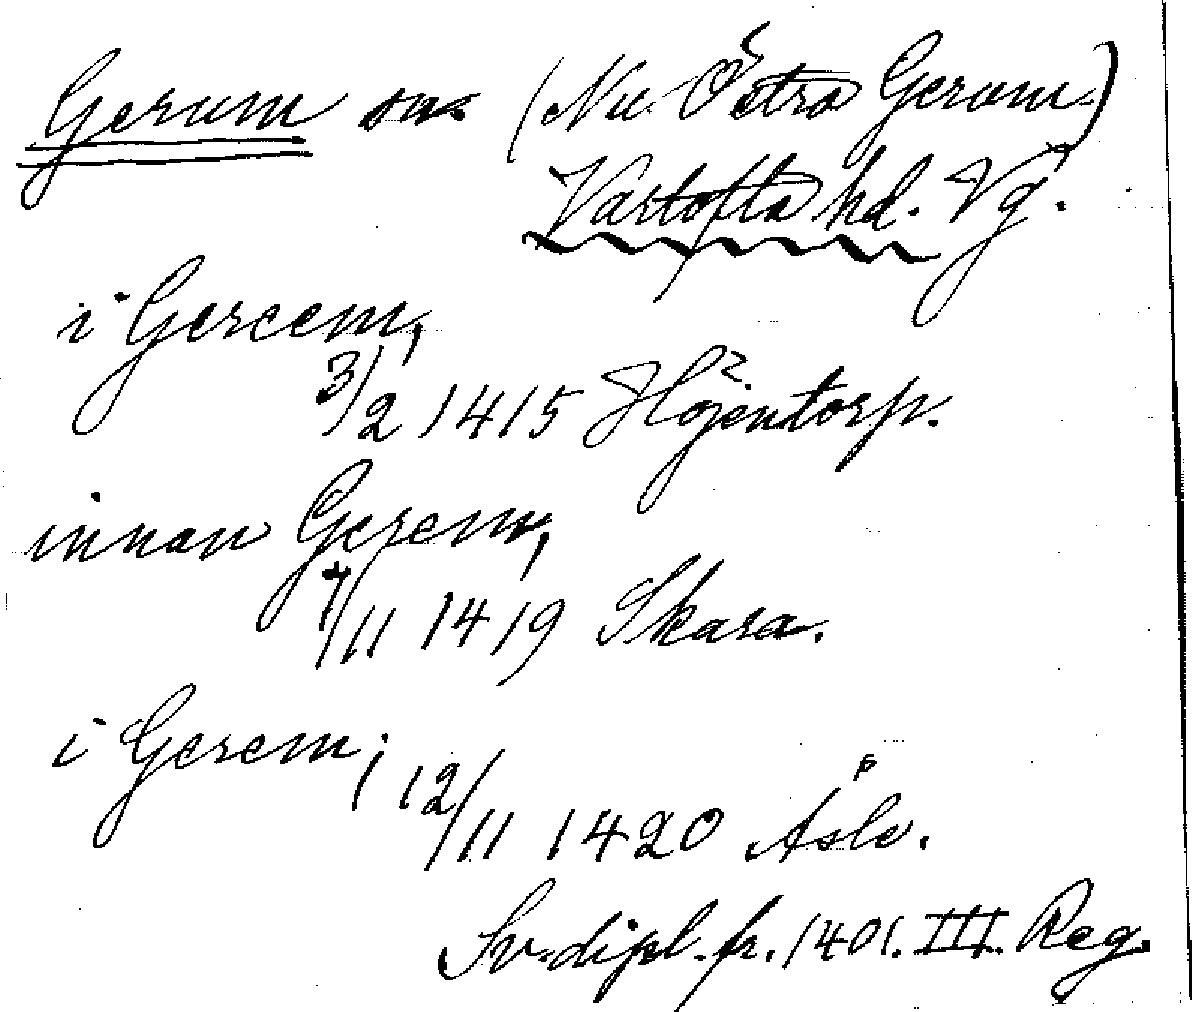 Gerum sn. (Nu. Östra Gerum.)
Vartofta hd. Vg.
i Gereem,
3/2 1415 Höjentorp.
innan Gerem,
7/11 1419 Skara.
i Gerem,
12/11 1420 Åsle.
Sv. dipl. fr. 1401. III. Reg.